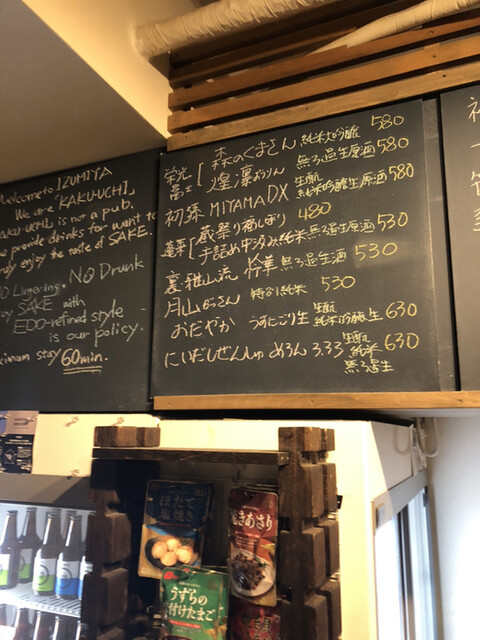 welcome to IZUMIYA
We are "KAKU-UCHI"
KAKU-UCHI is not a pub.
we provide drinks for want to
enjoy the taste of SAKE.
NO Lingering. NO Drunk
enjoy SAKE with
EDO-refined style
is our policy.
maximum stay 60min.
栄光冨士 森のくまさん 純米大吟醸 580
煌凛 無ろ過生原酒 580
初緑 MIYAMA DX 生酛 純米吟醸生原酒 580
蓬莱 蔵祭り福しぼり 480
手詰め中汲み純米無ろ過生原酒 530
裏・雅山流 粋華 無ろ過生酒 530
月山 特別純米 530
おだやか うすにごり生 生酛 純米吟醸生 630
にいだしぜんしゅ めろん 3.33 生酛 純米 無ろ過生 630
ほたて
塩焼き
きあさり
うずらの
味付けたまご